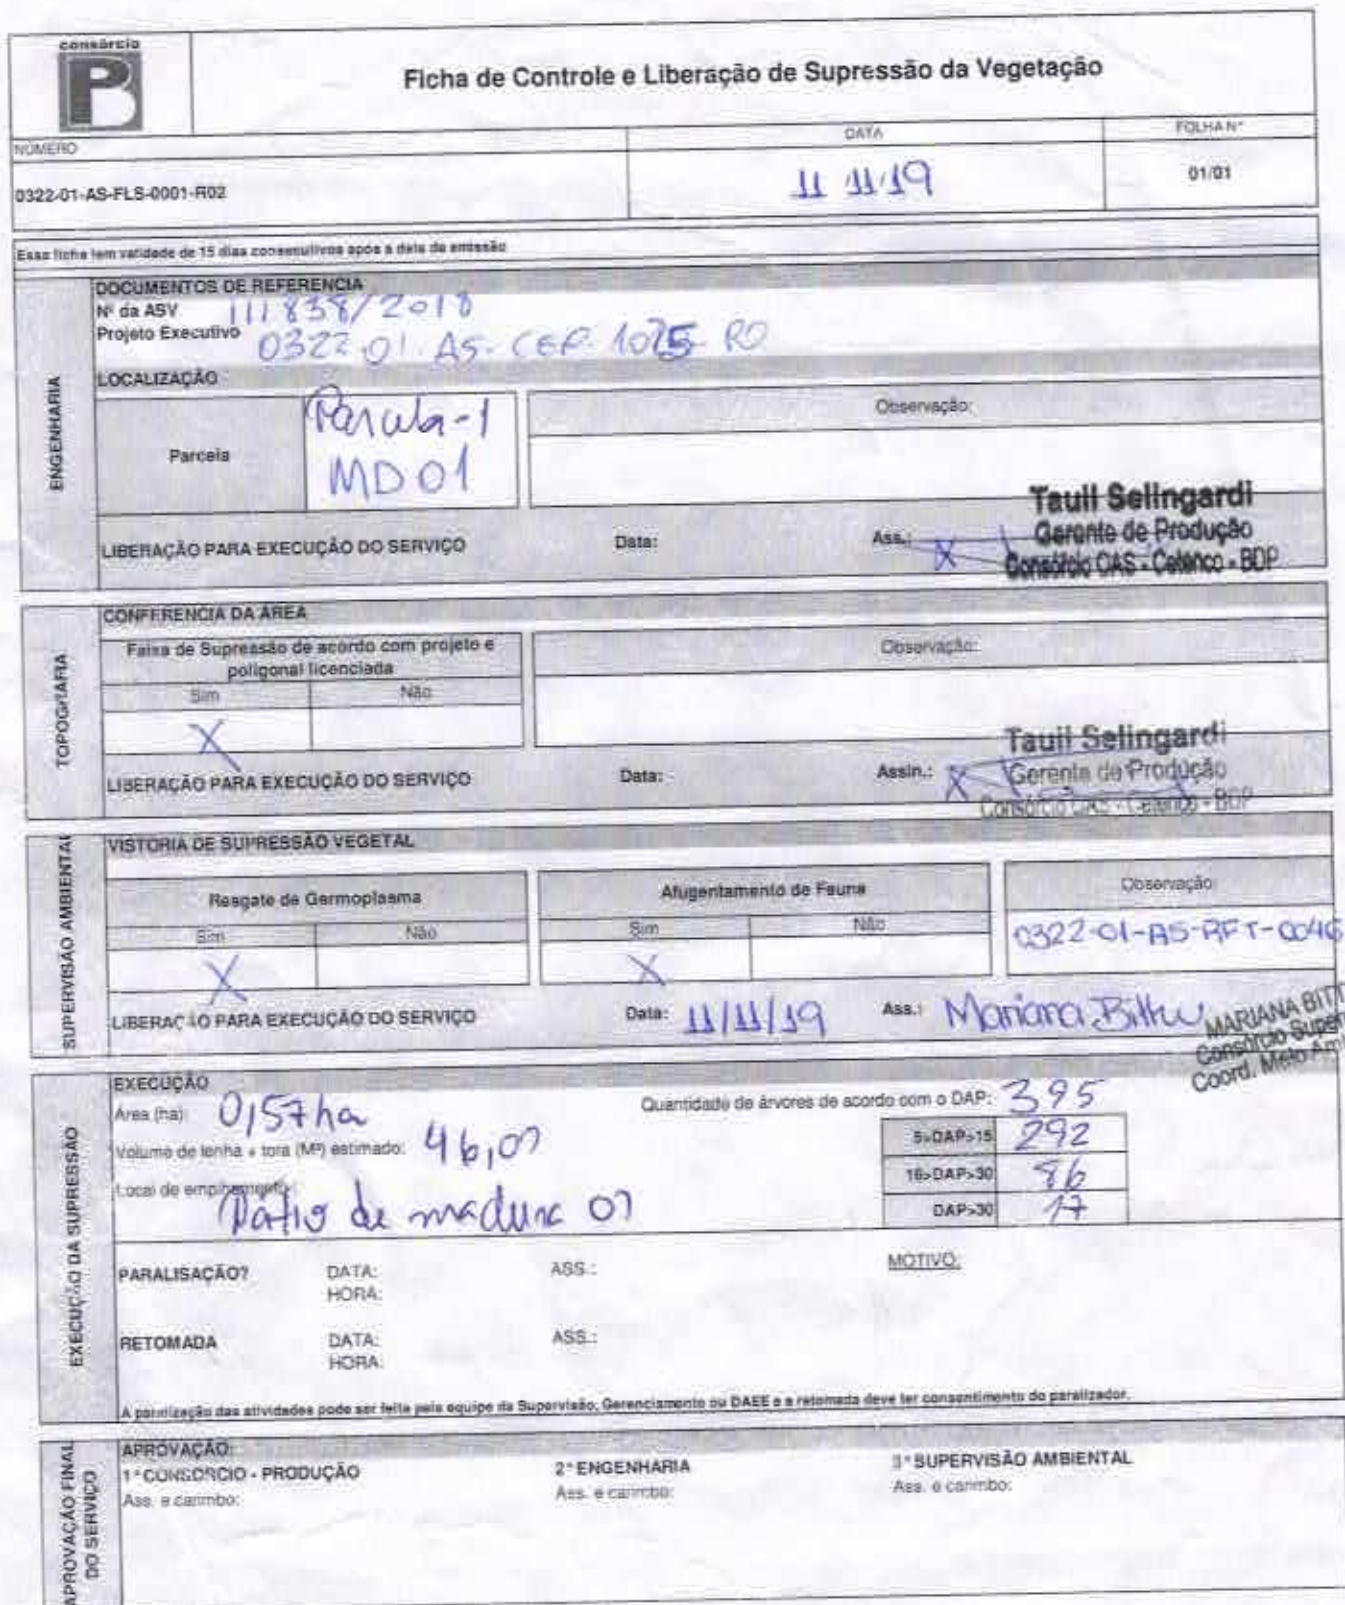 consórcio
PB
Ficha de Controle e Liberação de Supressão da Vegetação
NÚMERO
DATA
FOLHA Nº
0322-01-AS-FLS-0001-R02
11 11 19
01/01
Essa ficha tem validade de 15 dias consecutivos após a data de emissão
ENGENHARIA
DOCUMENTOS DE REFERENCIA
Nº da ASV 111838/2018
Projeto Executivo 0322.01.AS-CEP-1025-R0
LOCALIZAÇÃO
Parcela
Parcela-1
MD 01
Observação:
LIBERAÇÃO PARA EXECUÇÃO DO SERVIÇO
Data:
Ass.: X
Tauil Selingardi
Gerente de Produção
Consórcio OAS - Cetenco - BDP
TOPOGRAFIA
CONFERENCIA DA AREA
Faixa de Supressão de acordo com projeto e
poligonal licenciada
Observação:
Sim
Não
X
LIBERAÇÃO PARA EXECUÇÃO DO SERVIÇO
Data:
Assin.: X
Tauil Selingardi
Gerente de Produção
Consórcio OAS - Cetenco - BDP
SUPERVISÃO AMBIENTAL
VISTORIA DE SUPRESSÃO VEGETAL
Resgate de Germoplasma
Afugentamento de Fauna
Observação
Sim
Não
Sim
Não
0322-01-AS-RFT-0046
X
X
LIBERAÇÃO PARA EXECUÇÃO DO SERVIÇO
Data: 11/11/19
Ass.: Mariana Bittu
MARIANA BITT
Consórcio Super
Coord. Meio Am
EXECUÇÃO DA SUPRESSÃO
EXECUÇÃO
Área (ha): 0,57ha
Quantidade de árvores de acordo com o DAP: 395
Volume de lenha + tora (M³) estimado: 46,07
5>DAP>15 292
16>DAP>30 86
DAP>30 17
Local de empilhamento:
Pátio de madura 07
PARALISAÇÃO?
DATA:
HORA:
ASS.:
MOTIVO:
RETOMADA
DATA:
HORA:
ASS.:
A paralização das atividades pode ser feita pela equipe da Supervisão, Gerenciamento ou DAEE e a retomada deve ter consentimento do paralizador.
APROVAÇÃO FINAL
DO SERVIÇO
APROVAÇÃO:
1º CONSORCIO - PRODUÇÃO
2º ENGENHARIA
3º SUPERVISÃO AMBIENTAL
Ass. e carimbo:
Ass. e carimbo:
Ass. e carimbo: